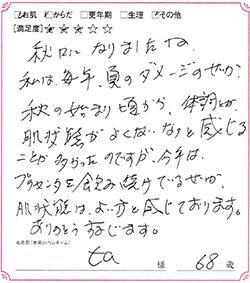 ☑お肌 □からだ □更年期 □生理 ☑その他
[満足度]☆☆☆☆☆
秋口になりましたね。
私は毎年、夏のダメージのせいか
秋の始まり頃から、体調とか
肌状態がよくな…なぁと感じる
ことが多かったのですが、今年は
プラセンタを飲み続けているせいか、
肌状態は、よい方と感じております。
ありがとうございます。
お名前(本名orペンネーム)
ta 様 68 歳